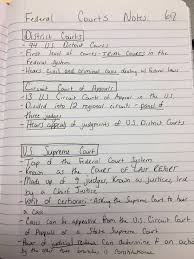 Federal Courts Notes
District Courts
- 94 U.S. District Courts
- First level of courts - Trial Courts in the
Federal System
- Hears Civil and criminal cases dealing w/ Federal laws
Circuit Court of Appeals
- 13 U.S. Circuit Courts of Appeal in the U.S.
- Divided into 12 regional courts - panel of
three judges
- Hears appeals of judgments of U.S. District Courts
U.S. Supreme Court
- Top of the Federal Court System
- Known as the Court of Last Resort
- Made up of 9 judges, known as justices, led
by a Chief Justice
- Writ of certiorari - Asking the Supreme Court to hear
a case
- Cases can be appealed from the U.S. Circuit Court
of Appeals or a State Supreme Court
- Power of judicial review: Can determine if an action
by the other branches is constitutional